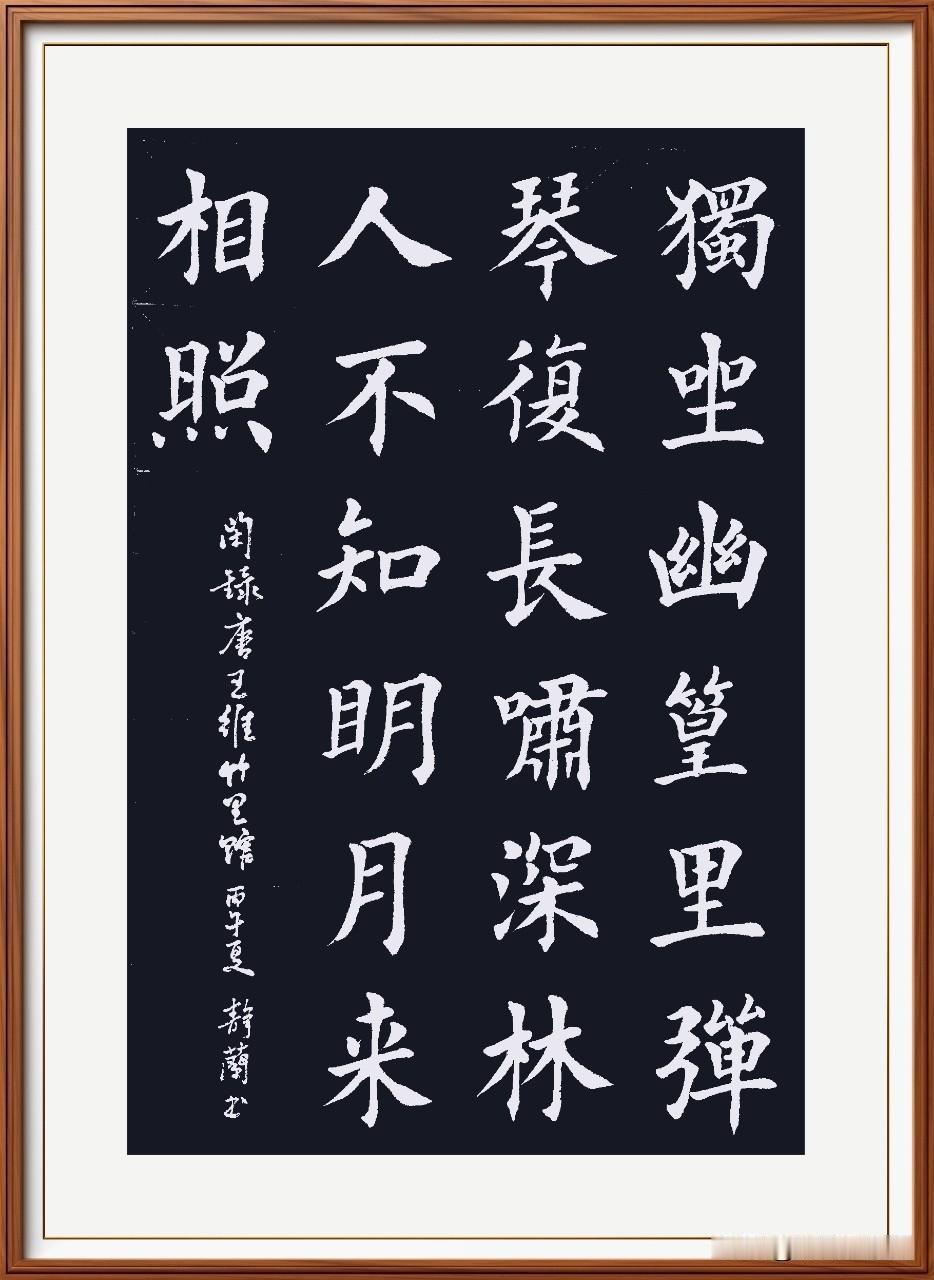 獨坐幽篁里彈
琴復長嘯深林
人不知明月来
相照
録唐王維竹里館 丙午夏 静蘭书